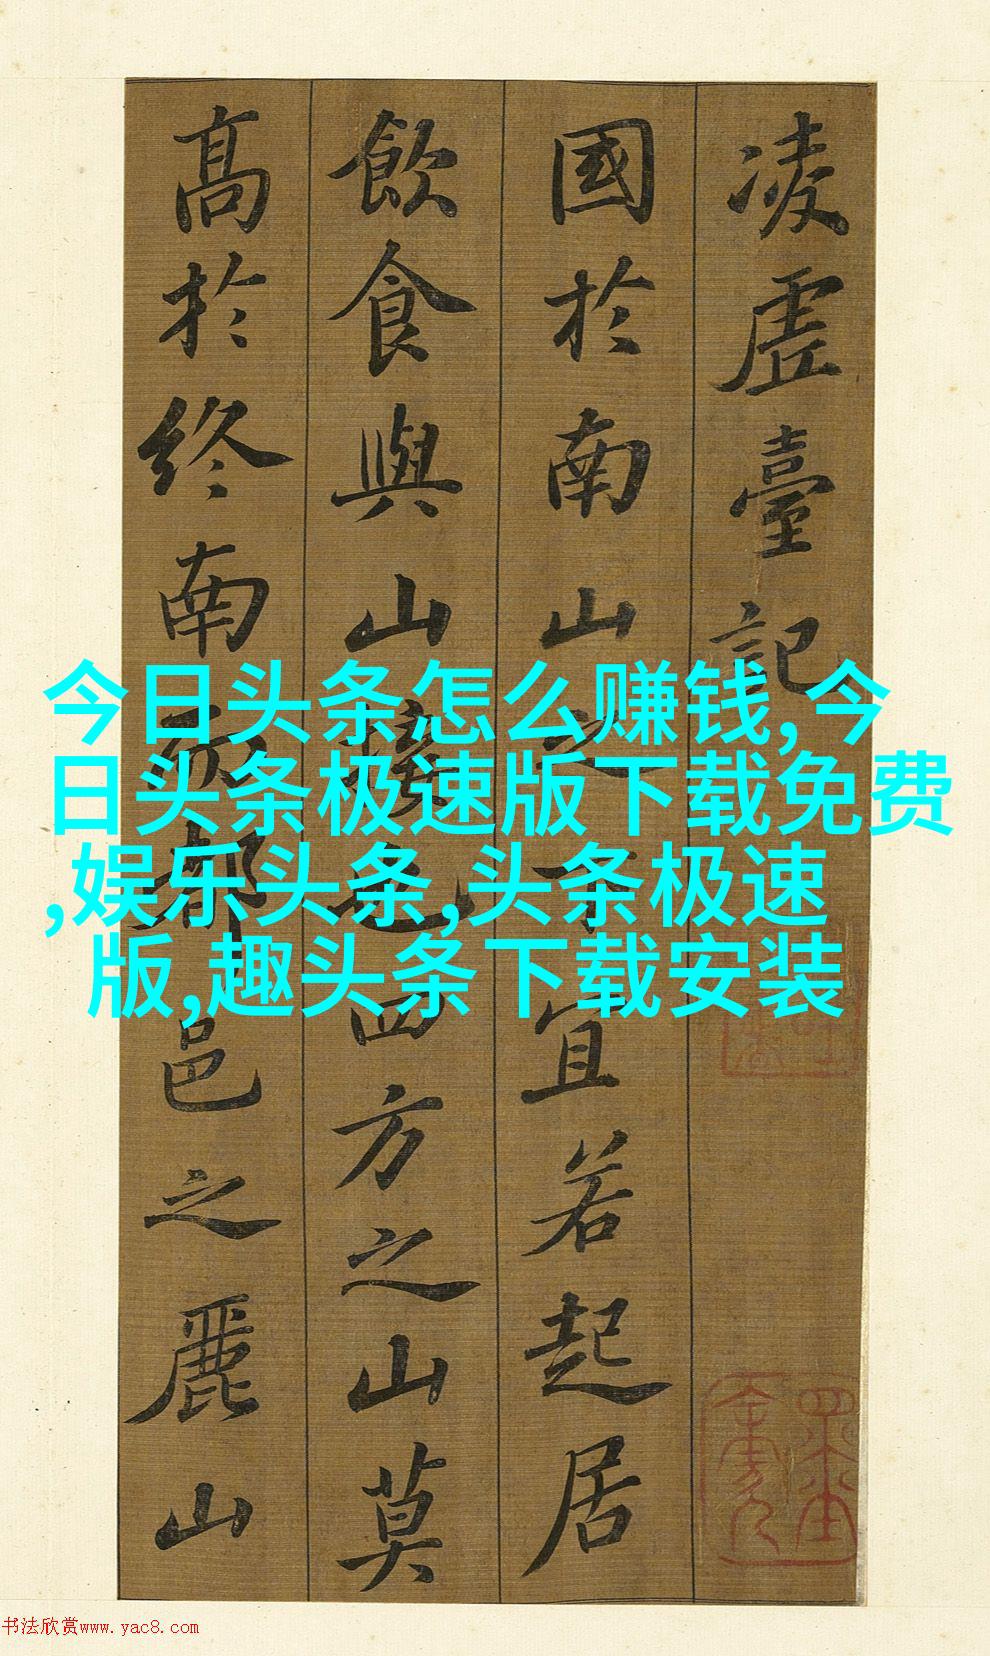 凌虛臺記
國於南山之下宜若起居
飲食與山接也四方之山莫
高於終南而都邑之麗山
今日头条怎么赚钱,今
日头条极速版下载免费
,娱乐头条,头条极速
版,趣头条下载安装
书法欣赏www.yac8.com